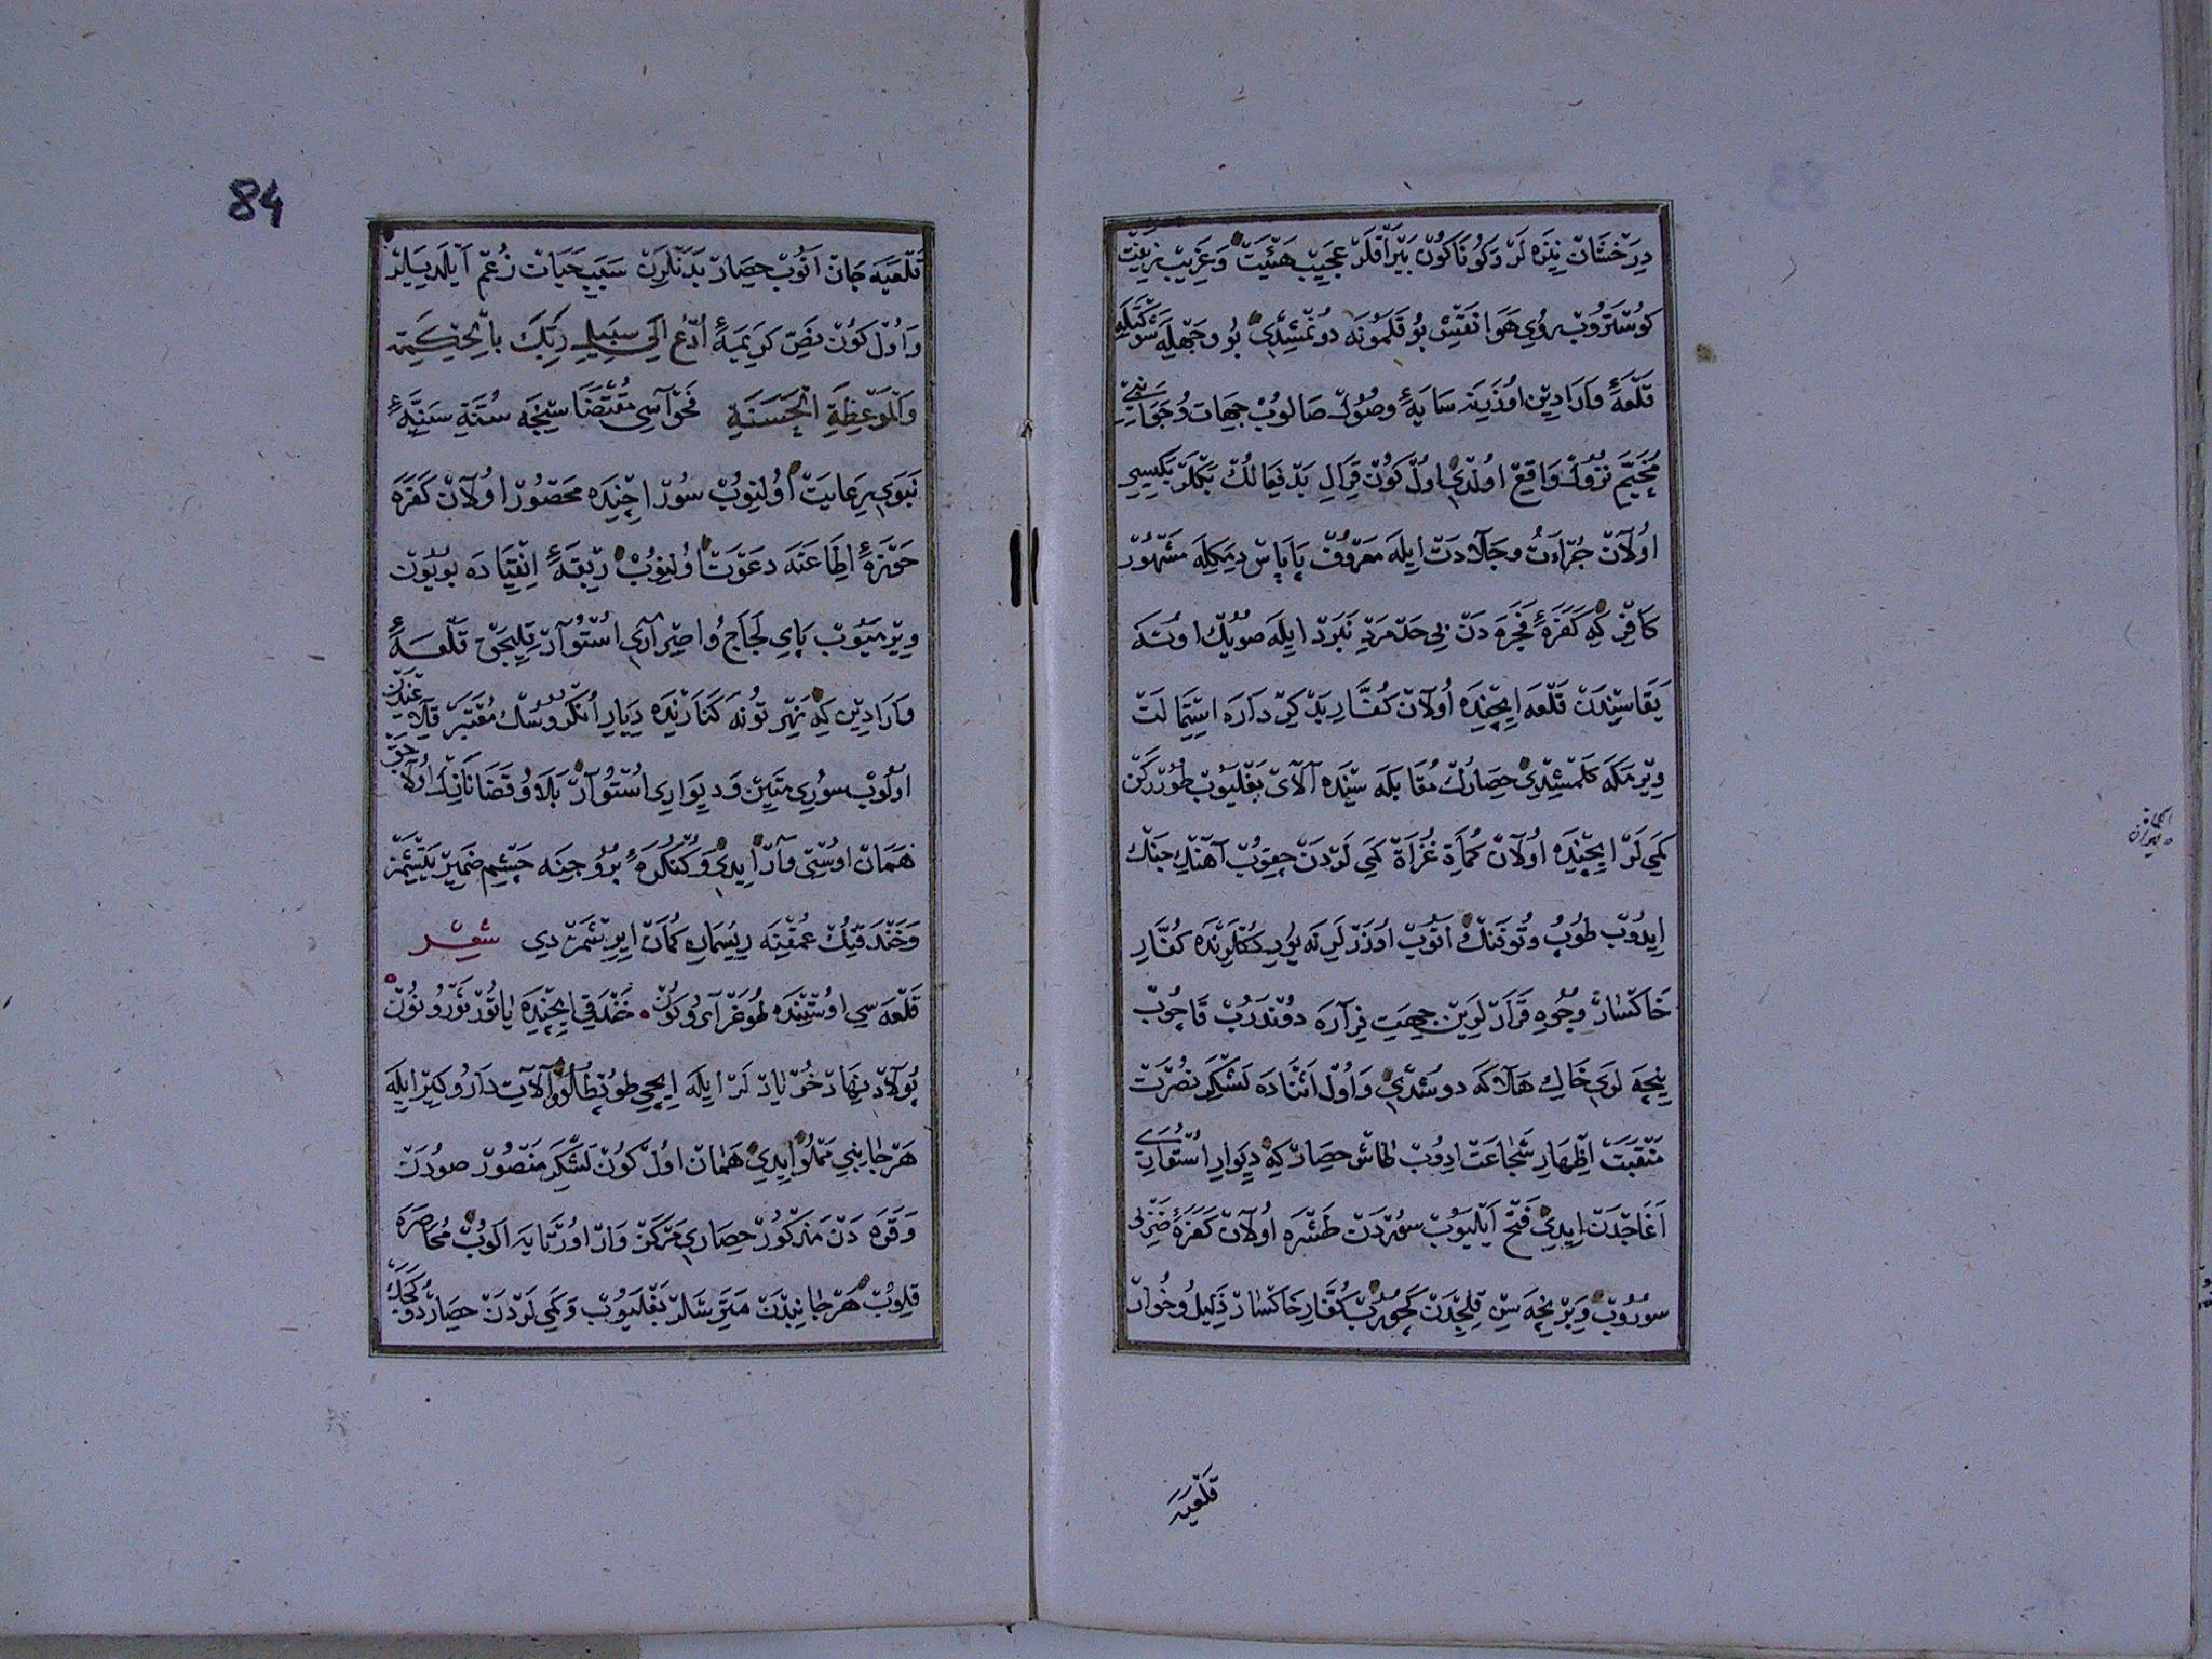 درخشان نیزه لر و کوناکون بیراقلر عجیب هیئت و غریب زینت
کوستروب روی هوا نقش بوقلمونه دونمشیدی بو وجهله شوکتله
قلعهٔ وارادین اوزرینه سایهٔ وصول صالوب جهات و جوانبی
مخیم نزول واقع اولدی اول کون قرال بدفعالك بکلر بکیسی
اولان جراءت و جلادت ایله معروف پاپاس دیمکله مشهور
کافر که کفرهٔ فجره دن بی حد مرد نبرد ایله صویك اوته
یقاسیندن قلعه ایچنده اولان کفار بدکرداره استمالت
ویرمکه کلمشیدی حصارك مقابله سینده آلای بغلیوب طورركن
کمی لر ایچنده اولان کماة غزاة کمی لردن چیقوب آهنك جنك
ایدوب طوب و توفنك اتوب اوزرلرینه یوریدكلرنده كفار
خاکسار وجوه قرارلرین جهت فراره دوندرب قاچوب
نیچه لری خاك هلاکه دوشدی و اول اثناده لشکر نصرت
منقبت اظهار شجاعت ادوب طاش حصار که دیوار استواری
آغاجدن ایدی فتح ایلیوب سوردن طشره اولان کفرهٔ ضزلی
سوروب و برنیچه سن قلیجدن کچوروب کفار خاکسار ذلیل و خوار
قلعیه
84
قلعیه جان اتوب حصار بدنلرن سبب حیات زعم ایلدیلر
و اول کون نص کریمهٔ ادع الی سبیل ربك بالحکمة
والموعظة الحسنة فحواسی مقتضاسنجه سنت سنیهٔ
نبوی یه رعایت اولنوب سور اچنده محصور اولان کفره
حوزهٔ اطاعته دعوت اولنوب ربقهٔ انقیاده بویون
ویرمیوب پای لجاج و اصراری استوار قلیجق قلعهٔ
وارادین که نهر تونه کنارنده دیار انکروسك معتبر قلاعندن
اولوب سوری متین و دیواری استوار بلاو قضانك اولاجق
همان اوستی وار ایدی و کنکرهٔ بروجنه چشم ضمیر یتیشمز
و خندقینك عمقنه ریسمان کمان ایرشمزدی شعر
قلعه سی اوستنده طوغر آی و کون خندقی ایچنده یاتور نور و نون
پولاد نهاد خریادلر ایله ایچی طوپطلو و آلات دار و کیر ایله
هر جانبی مملو ایدی همان اول کون لشکر منصور صورت
و قره دن مذکور حصاری مرکز وار اورتایه الوب محاصره
قلوب هر جانبدن متریسلر بغلیوب و کمی لردن حصار دوکجك